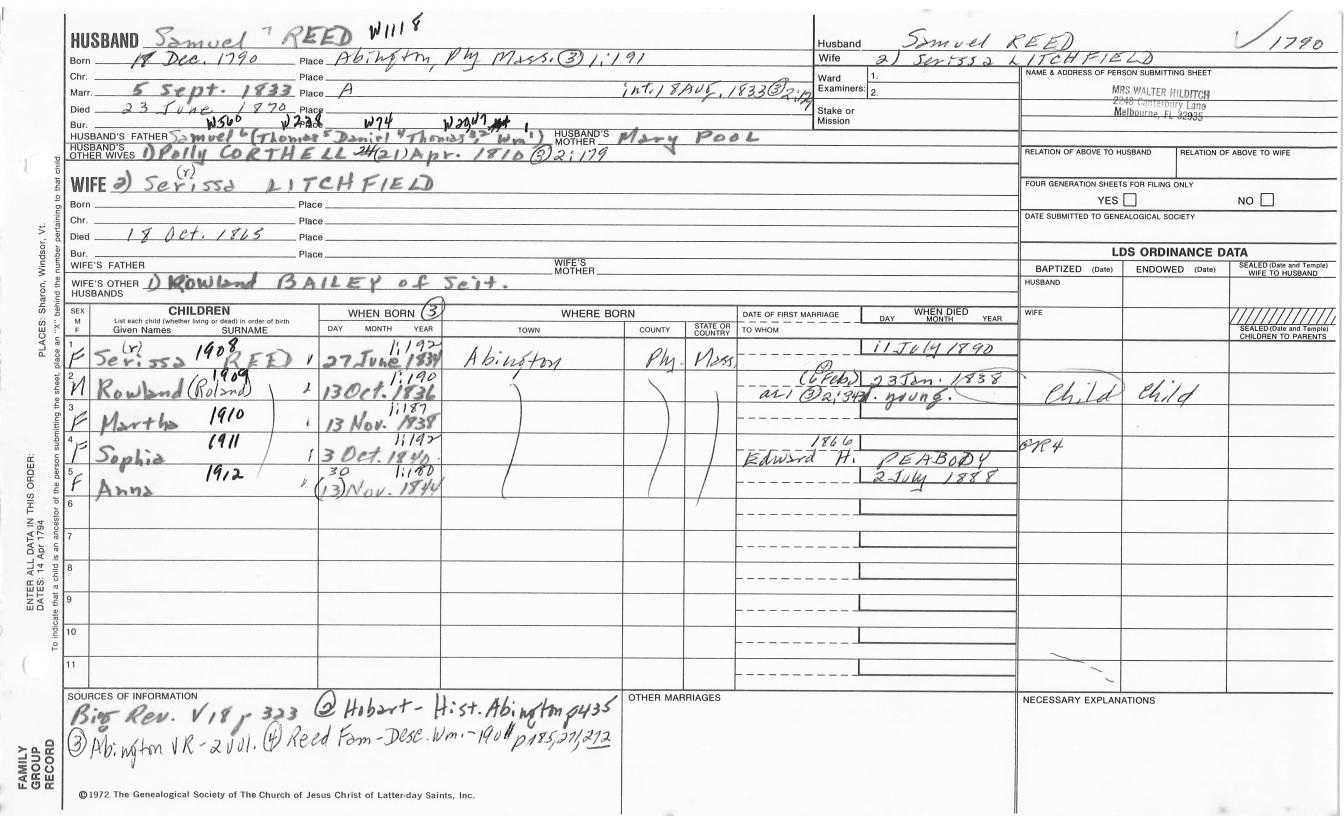 HUSBAND Samuel 7 REED W1118
Born 18 Dec. 1790 Place Abington, Ply Mass. (3) 1:191
Chr. Place
Marr. 5 Sept. 1833 Place A int. 18 Aug. 1833 (3) 2:
Died 23 June 1870 Place
Bur. W560 W238 Place W74 W20,
HUSBAND'S FATHER Samuel 6 (Thomas 5 Daniel 4 Thomas 3 2 Wm 1) HUSBAND'S MOTHER Mary POOL
HUSBAND'S OTHER WIVES 1) Polly CORTHELL 24 (21) Apr. 1810 (3) 2:179
WIFE 2) Serissa (r) LITCHFIELD
Born Place
Chr. Place
Died 18 Oct. 1865 Place
Bur. Place
WIFE'S FATHER WIFE'S MOTHER
WIFE'S OTHER HUSBANDS 1) Rowland BAILEY of Scit.
Husband Samuel REED 1790
Wife 2) Serissa LITCHFIELD
Ward
Examiners: 1.
2.
Stake or
Mission
NAME & ADDRESS OF PERSON SUBMITTING SHEET
MRS WALTER HILDITCH
2248 Canterbury Lane
Melbourne, FL 32935
RELATION OF ABOVE TO HUSBAND RELATION OF ABOVE TO WIFE
FOUR GENERATION SHEETS FOR FILING ONLY
YES NO
DATE SUBMITTED TO GENEALOGICAL SOCIETY
LDS ORDINANCE DATA
BAPTIZED (Date) ENDOWED (Date) SEALED (Date and Temple) WIFE TO HUSBAND
HUSBAND
WIFE
SEALED (Date and Temple) CHILDREN TO PARENTS
SEX M F CHILDREN WHEN BORN (3) WHERE BORN DATE OF FIRST MARRIAGE WHEN DIED
List each child (whether living or dead) in order of birth
Given Names SURNAME DAY MONTH YEAR TOWN COUNTY STATE OR COUNTRY TO WHOM DAY MONTH YEAR
1 F Serissa (r) 1908 REED 27 June 1834 1:192 Abington Ply Mass. 11 July 1890
2 M Rowland (Roland) 1909 13 Oct. 1836 1:190 (6 Feb.) 23 Jan. 1838 (3) 2:343 d. young. Child Child
3 F Martha 1910 13 Nov. 1838 1:187
4 F Sophia 1911 3 Oct. 1840 1:192 1866 Edward H. PEABODY GR4
5 F Anna 1912 30 (13) Nov. 1844 1:180 2 July 1888
6
7
8
9
10
11
SOURCES OF INFORMATION
Biog Rev. V18 p 323 (2) Hobart - Hist. Abington p435
(3) Abington VR - 2 vol. (4) Reed Fam - Desc. Wm. - 1901 p185, 271, 272
OTHER MARRIAGES
NECESSARY EXPLANATIONS
©1972 The Genealogical Society of The Church of Jesus Christ of Latter-day Saints, Inc.
FAMILY GROUP RECORD
ENTER ALL DATA IN THIS ORDER:
DATES: 14 Apr 1794 PLACES: Sharon, Windsor, Vt.
To indicate that a child is an ancestor of the person submitting the sheet, place an "X" behind the number pertaining to that child.